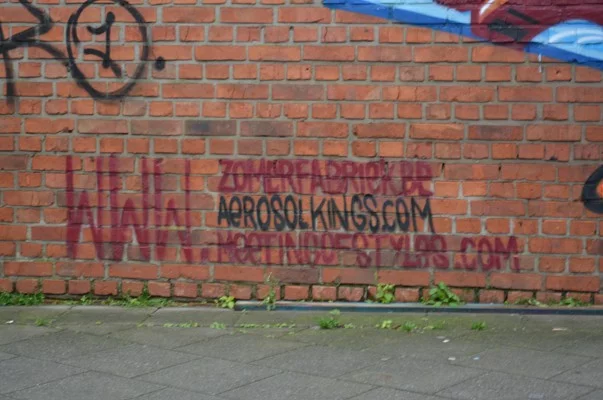 WWW.
ZOMERFABRIEK.BE
AEROSOLKINGS.COM
MEETINGOFSTYLES.COM